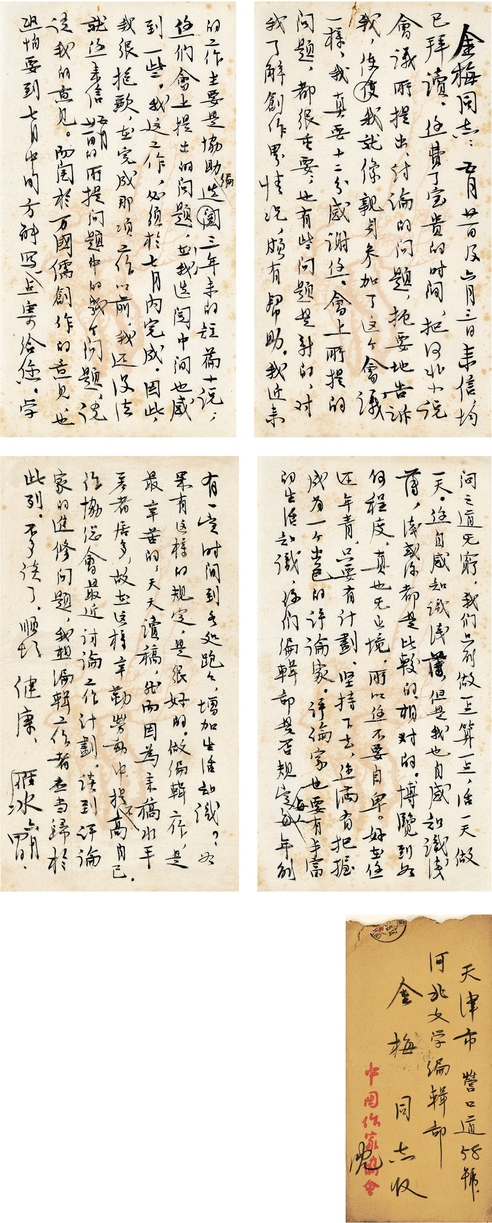 金梅同志：五月廿日及六月三日来信，均
已拜读。您费了宝贵的时间，把河北小说
会议所提出、讨论的问题，扼要地告诉
我，使我就像亲身参加了这个会议
一样。我真要十二分感谢您。会上所提的
问题，都很重要，也有些问题是新的，对
我了解创作界情况，颇有帮助。我近来
的工作主要是协助选编三年来的短篇小说，
你们会上提出的问题，在我选阅中间也感
到一些。我这工作，必须于七月内完成。因此，
我很抱歉在完成那项工作以前，我还没法
就您来信五月廿日的所提问题中的几个问题，说
说我的意见。而关于万國儒创作的意见，也
恐怕要到七月中旬方能写点寄给您。学
问之道无穷，我们只能做一点算一点，活一天做
一天。您自感知识浅薄，但是我也自感知识浅
薄，浅或深都是比较的相对的。博览到如
何程度，真也无止境，所以您不要自卑。好在您
还年青，只要有计划，坚持下去，您满有把握
成为一个出色的评论家。评论家也要有丰富
的生活知识，你们编辑部是否规定每人每年例
有一定时间到各处跑跑，增加生活知识？如
果有这样的规定，是很好的。做编辑工作，是
最辛苦的，天天读稿，然而因为来稿水平
者居多，故在这样辛勤劳动中提不高自己。
作协总会最近讨论工作计划谈到评论
家的进修问题，我想编辑工作者应当归于
此列。不多谈了。顺颂
健康。
雁冰 六月
天津市 营口道58號
河北文学编辑部
金梅同志收
中国作家協會
沈